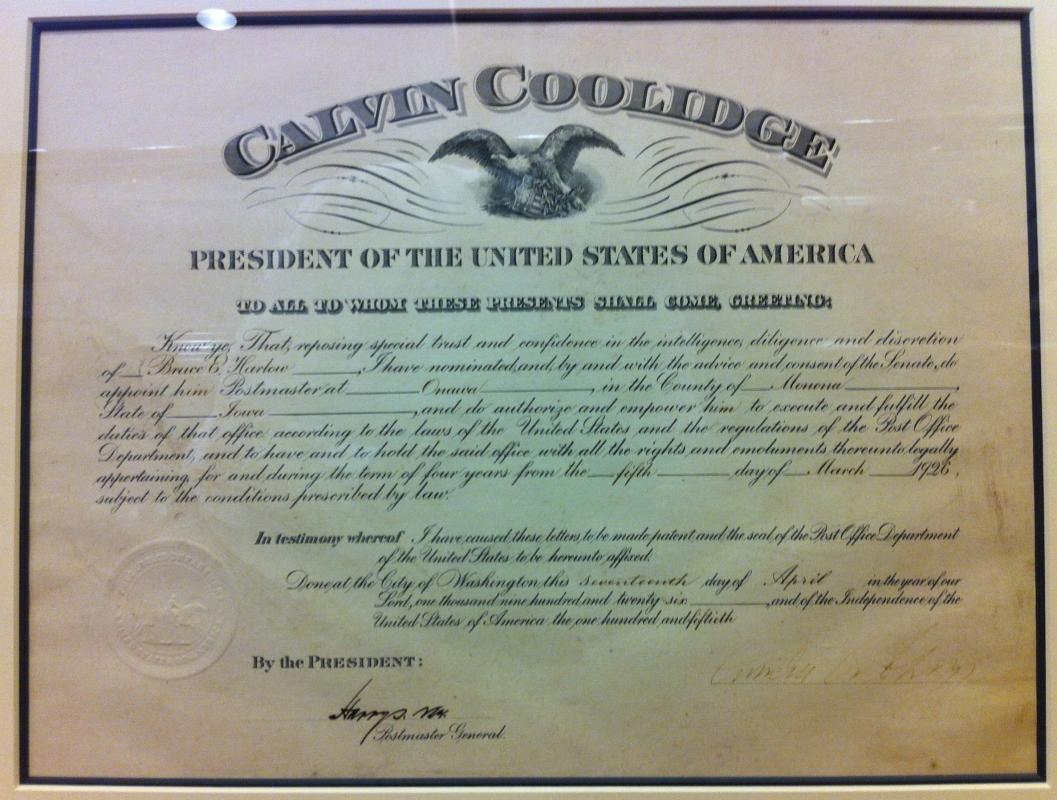 CALVIN COOLIDGE
PRESIDENT OF THE UNITED STATES OF AMERICA
TO ALL TO WHOM THESE PRESENTS SHALL COME, GREETING:
Know ye, That, reposing special trust and confidence in the intelligence, diligence and discretion
of Bruce E. Harlow, I have nominated, and, by and with the advice and consent of the Senate, do
appoint him Postmaster at Onawa, in the County of Monona,
State of Iowa, and do authorize and empower him to execute and fulfill the
duties of that office according to the laws of the United States and the regulations of the Post Office
Department, and to have and to hold the said office with all the rights and emoluments thereunto legally
appertaining, for and during the term of four years from the fifth day of March 1926,
subject to the conditions prescribed by law.
In testimony whereof I have caused these letters to be made patent and the seal of the Post Office Department
of the United States to be hereunto affixed.
Done at the City of Washington this seventeenth day of April in the year of our
Lord, one thousand nine hundred and twenty-six, and of the Independence of the
United States of America the one hundred and fiftieth
By the PRESIDENT:
Harry S. New
Postmaster General.